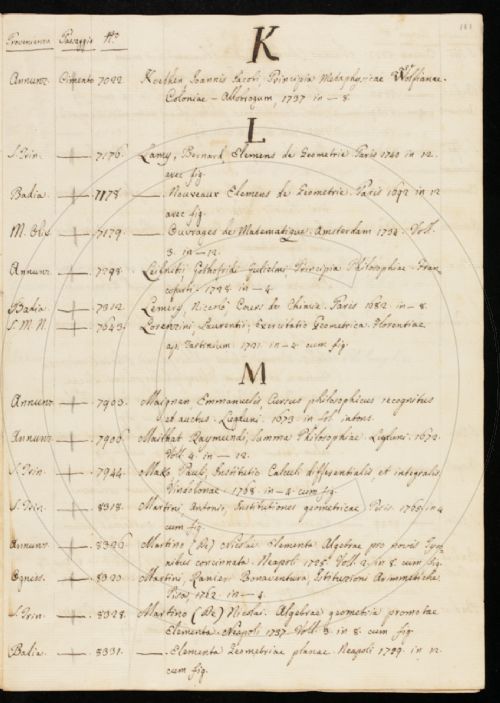 161
Provenienza Passaggio Nº
K
Annunz. Cimento 7022. Koethen Joannis Jacobi, Principia Metaphysicae Wolfianae.
Coloniae - Allobrogum, 1737. in - 8.
L
S. Prin. 7176. Lamy, Bernard, Elemens de Geometrie. Paris 1740. in 12.
avec fig.
Badia 7178. Nouveaux Elemens de Geometrie. Paris 1692. in 12
avec fig.
7179. Ouvrages de Matematique. Amsterdam 1734. Voll.
3. in - 12.
Annunz. 7298. Leibnitii, Gothofridi Gulielmi, Principia Philosophiae. Fran
cofurti. 1728. in - 4.
Badia 7312. Lemery, Nicerò, Cours de Chimie. Paris 1682. in - 8.
S. M. N. 7643. Lorenzini, Laurentii, Exercitatio Geometrica. Florentiae
ap. Tartinium. 1721. in - 4. cum fig.
M
Annunz. 7903. Maignan Emmanuelis, Cursus philosophicus recognitus
et auctus. Lugduni. 1673. in fol. intens.
Annunz. 7906. Mailhat Raymundi, Summa Philosophiae. Lugduni. 1672.
Voll. 4. in - 12.
S. Prin. 7944. Mako Pauli, Institutio Calculi differentialis, et integralis.
Vindobonae. 1768. in - 4. cum fig.
S. Prin. 8318. Martini, Antonio, Institutiones geometricae. Pisis. 1765. in 4
cum fig.
Annunz. 8326. Martino (De) Nicolai. Elementa Algebrae pro novis Tyro
nibus concinnata. Neapoli 1725. Voll. 2. in 8. cum fig.
8320. Martini, Ranieri Bonaventura, Istituzioni Asimmetriche.
Pisa, 1762. in - 4.
S. Prin. 8328. Martino (De) Nicolai. Algebrae geometria promotae
Elementa. Neapoli 1737. Voll. 3. in 8. cum fig
Badia. 8331. Elementa Geometriae planae. Neapoli 1729. in 12.
cum fig.